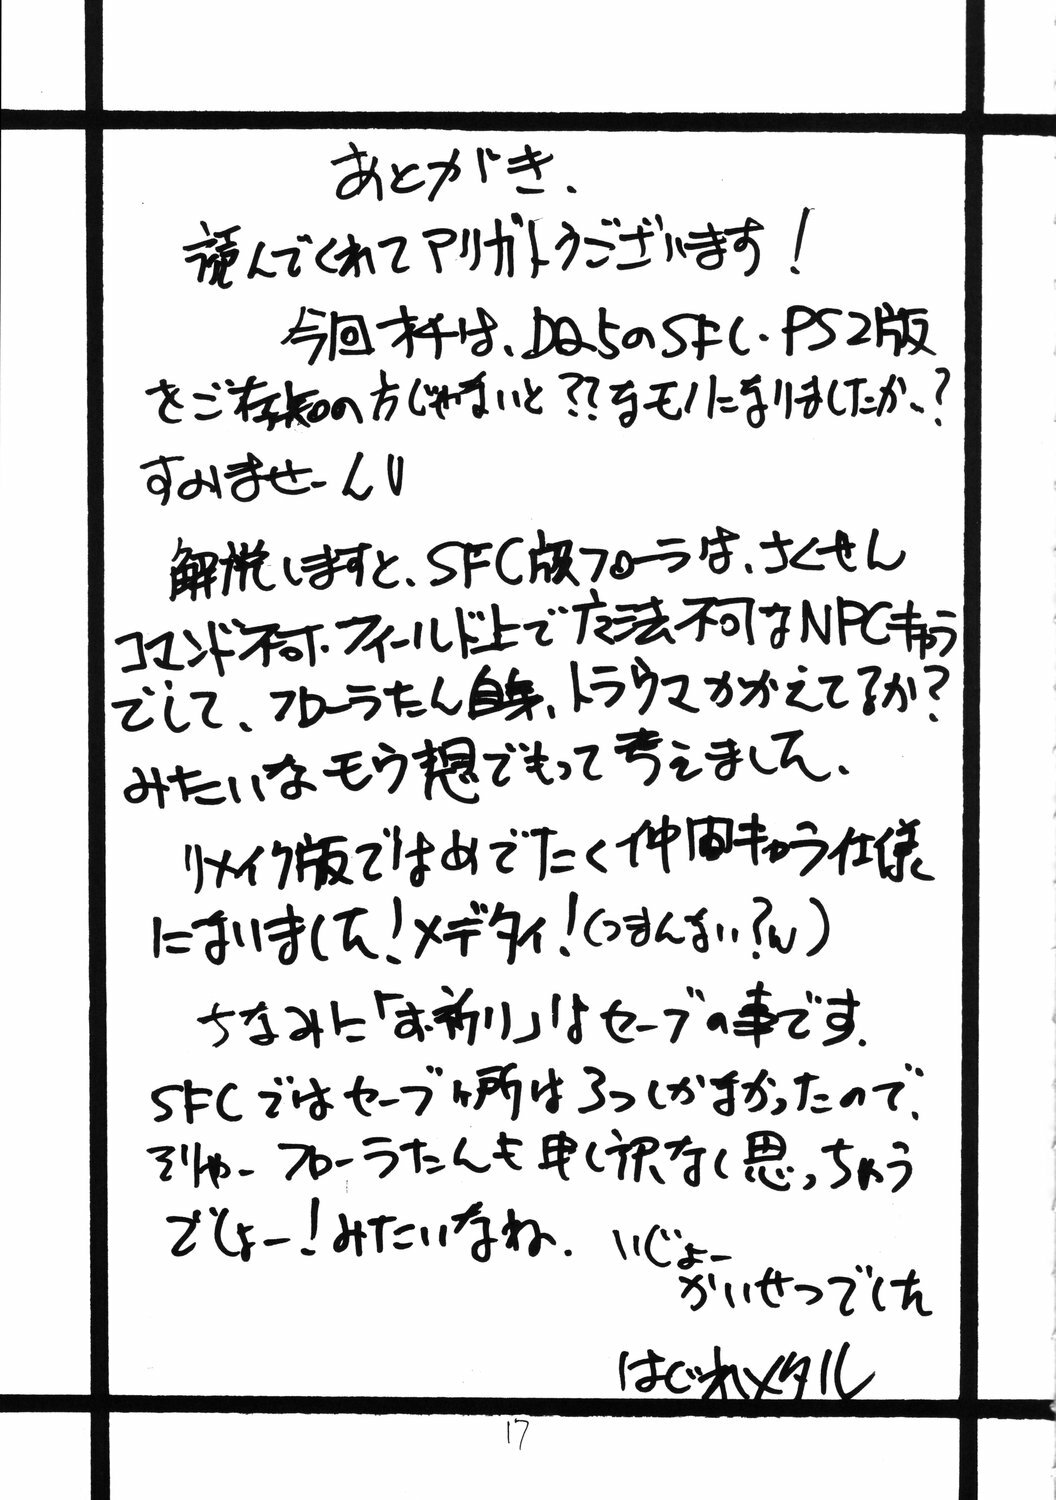 あとがき、
読んでくれてアリガトうございます！
今回オチは、DQ5のSFC・PS2版
をご存知の方じゃないと??なモノになりましたか、?
すみませーんU
解説しますと、SFC版フローラは、さくせん
コマンド不可、フィールド上で方法不可なNPCキャラ
でして、フローラたん自身、トラウマかかえてるか？
みたいなモウ想でもって考えました、
リメイク版ではめでたく仲間キャラ仕様
になりました！メデタイ！(つまんない？w)
ちなみに「お祈り」はセーブの事です.
SFCではセーブヶ所は3つしかなかったので、
そりゃーフローラたんも申し訳なく思っちゃう
でしょー！みたいなね、
いじょー
かいせつでした
はぐれメタル
17